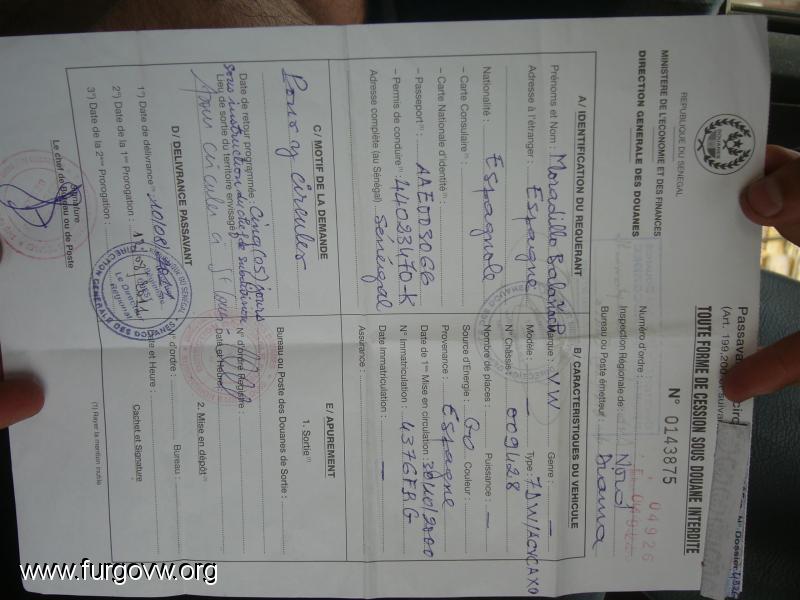 REPUBLIQUE DU SÉNÉGAL
MINISTÈRE DE L'ÉCONOMIE ET DES FINANCES
DIRECTION GENERALE DES DOUANES
(Art. 199,200
TOUTE FORME DE CESSION SOUS DOUANE INTERDITE
N° 0143875
N° Dossier
Numéro d'ordre :
04926
Inspection Régionale de : Nord
Bureau ou Poste émetteur : Diama
A/ IDENTIFICATION DU REQUERANT
Prénoms et Nom : Moradillo
Adresse à l'étranger : Espagne
Nationalité : Espagnole
- Carte Consulaire :
- Carte Nationale d'identité :
- Passeport : AAE003068
- Permis de conduire : 44023470-K
Adresse complète (au Sénégal) Sénégal
B/ CARACTERISTIQUES DU VEHICULE
Marque : VW Genre : —
Modèle : — Type : 7DW/ACVCAX0
N° Châssis : 009428
Nombre de places : Puissance : —
Source d'Energie : GO Couleur :
Provenance : Espagne
Date de 1ère Mise en circulation : 30/10/2000
N° Immatriculation : 4376FBG
Date Immatriculation : —
Assurance :
C/ MOTIF DE LA DEMANDE
Pour y circuler
Date de retour programmée : Cinq (05) jours
sous instruction du chef de subdivision
Lieu de sortie du territoire envisagé :
D/ DELIVRANCE PASSAVANT
1°) Date de délivrance : 10/08/
2°) Date de la 1ère Prorogation :
3°) Date de la 2ème Prorogation :
Signature
Le chef de Bureau ou de Poste
E/ APUREMENT
1. Sortie
Bureau ou Poste des Douanes de Sortie :
N° d'ordre Registre :
Date et Heure :
2. Mise en dépôt
Bureau :
N° d'ordre :
Date et Heure :
Cachet et Signature
(1) Rayer la mention inutile
www.furgovw.org